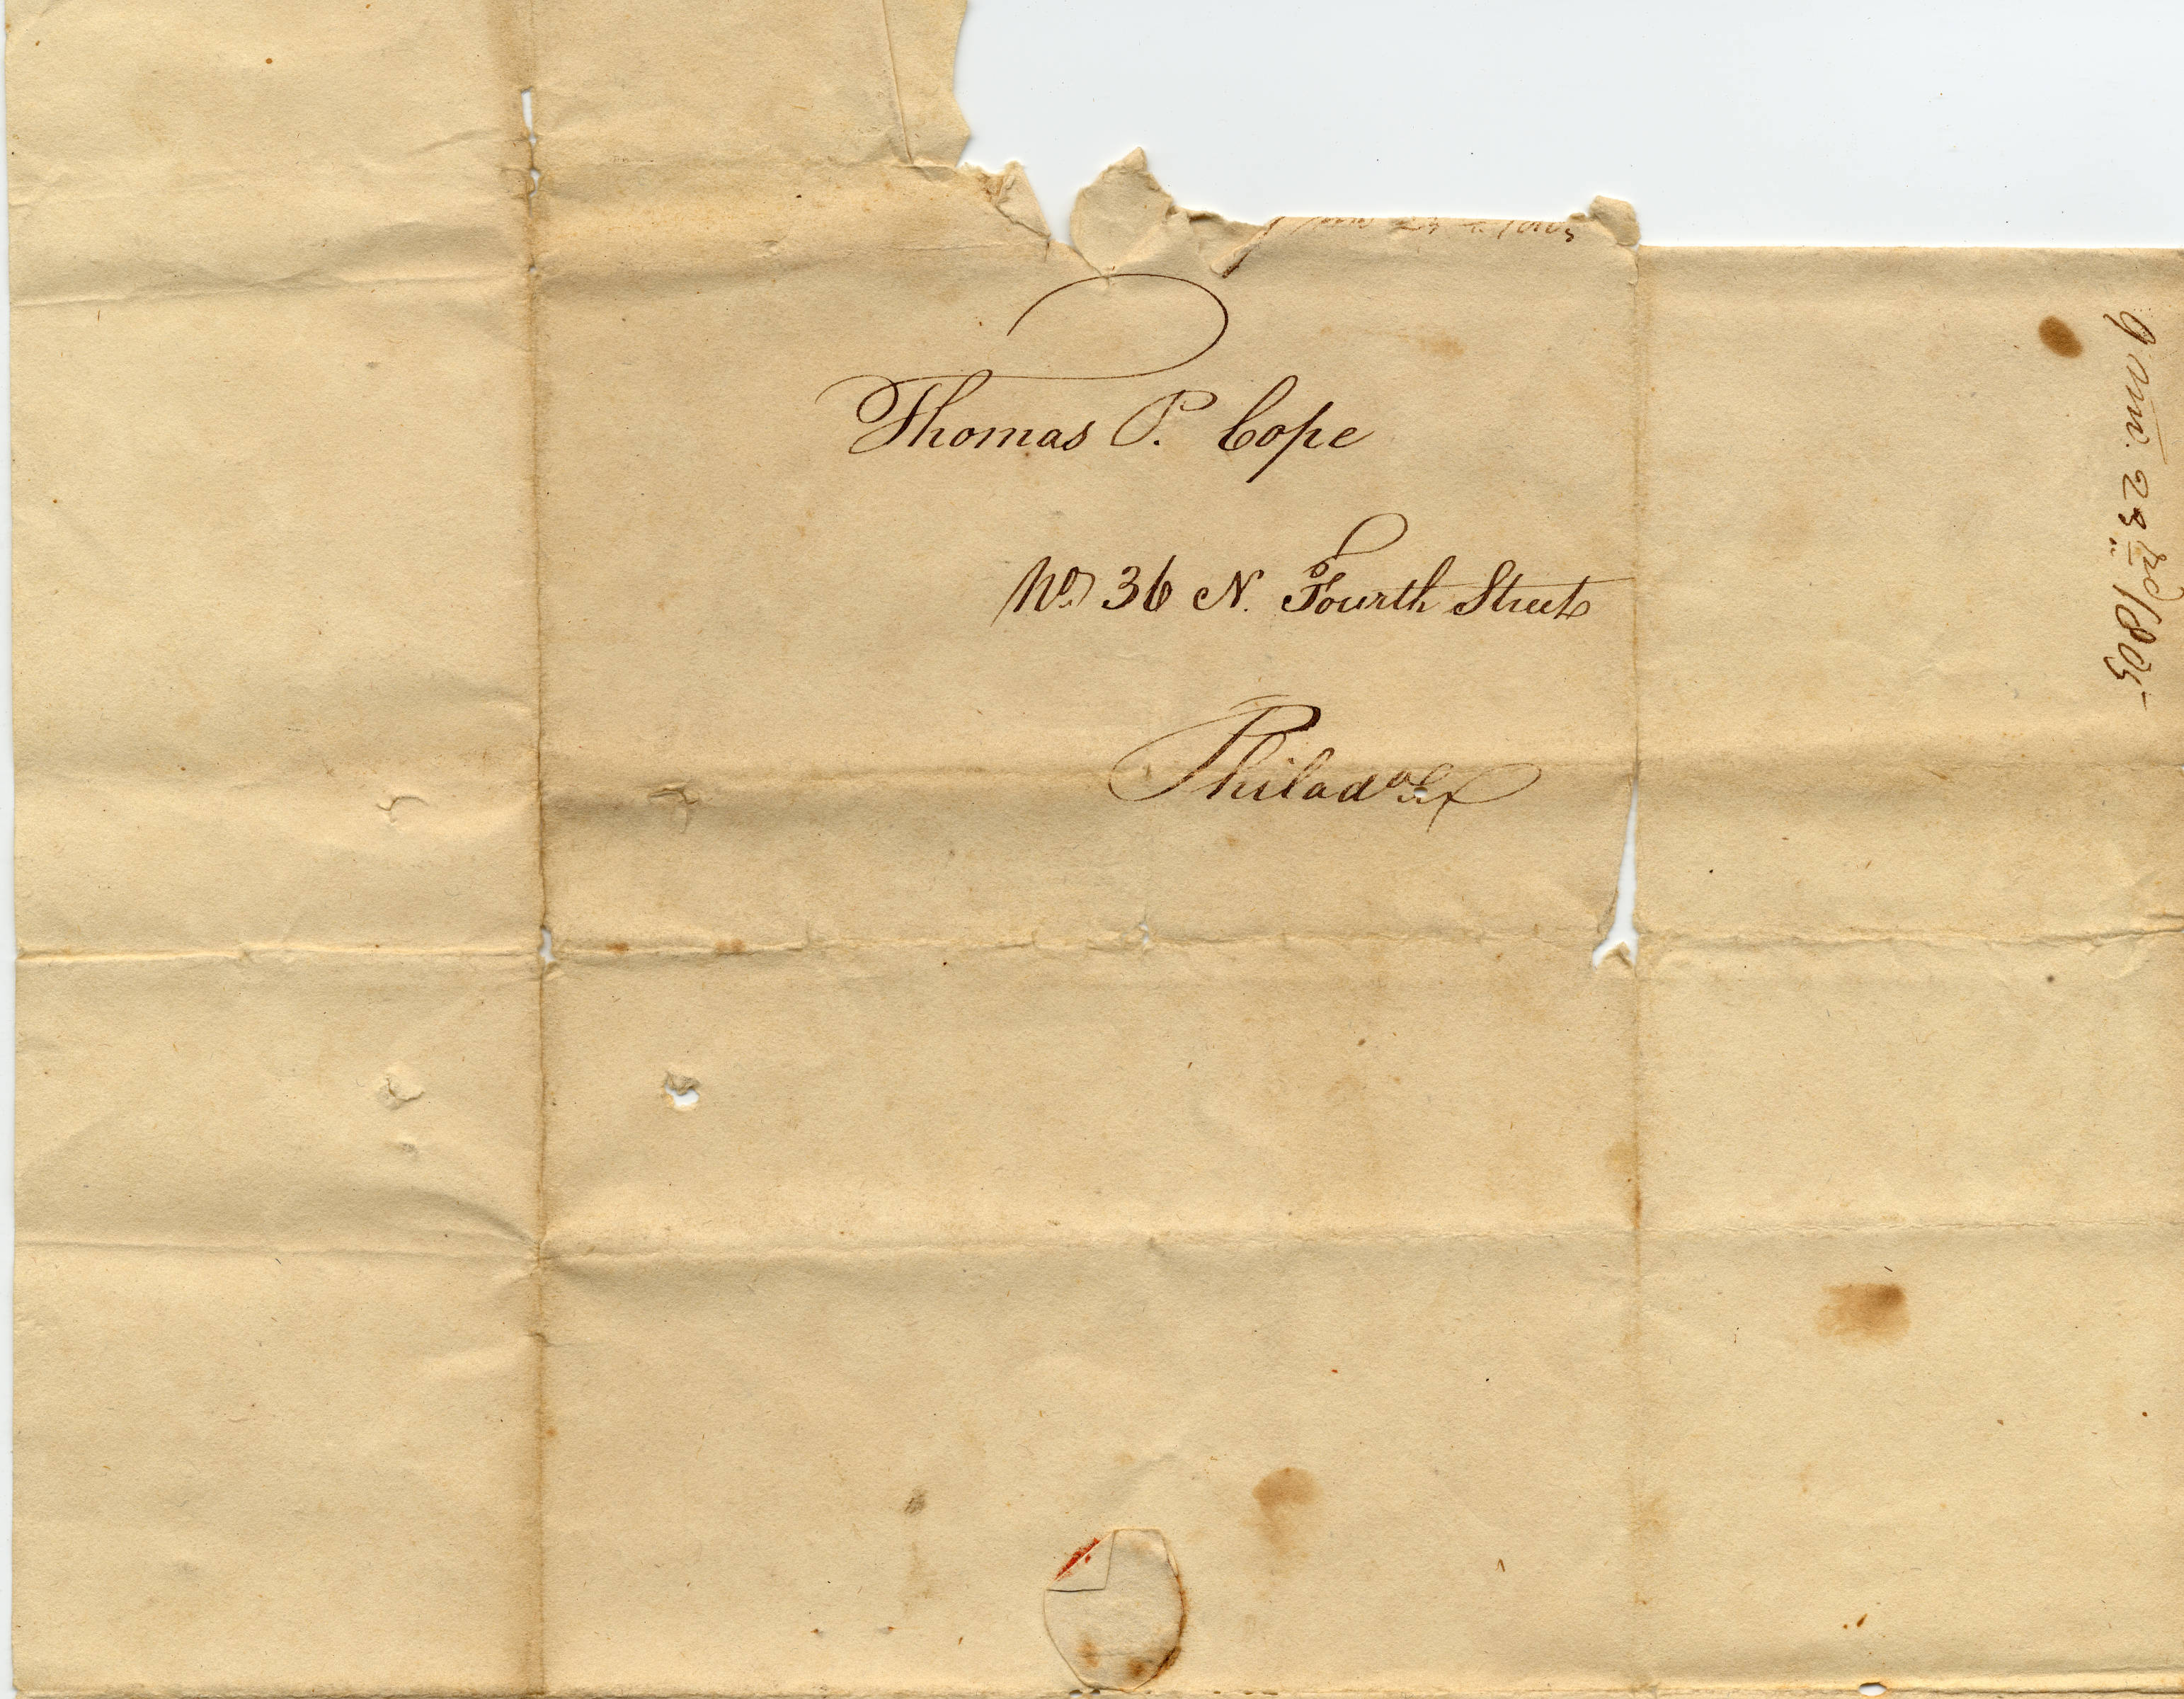 Thomas P. Cope
No. 36 N. Fourth Street
Philada
9 mo. 23rd 1805